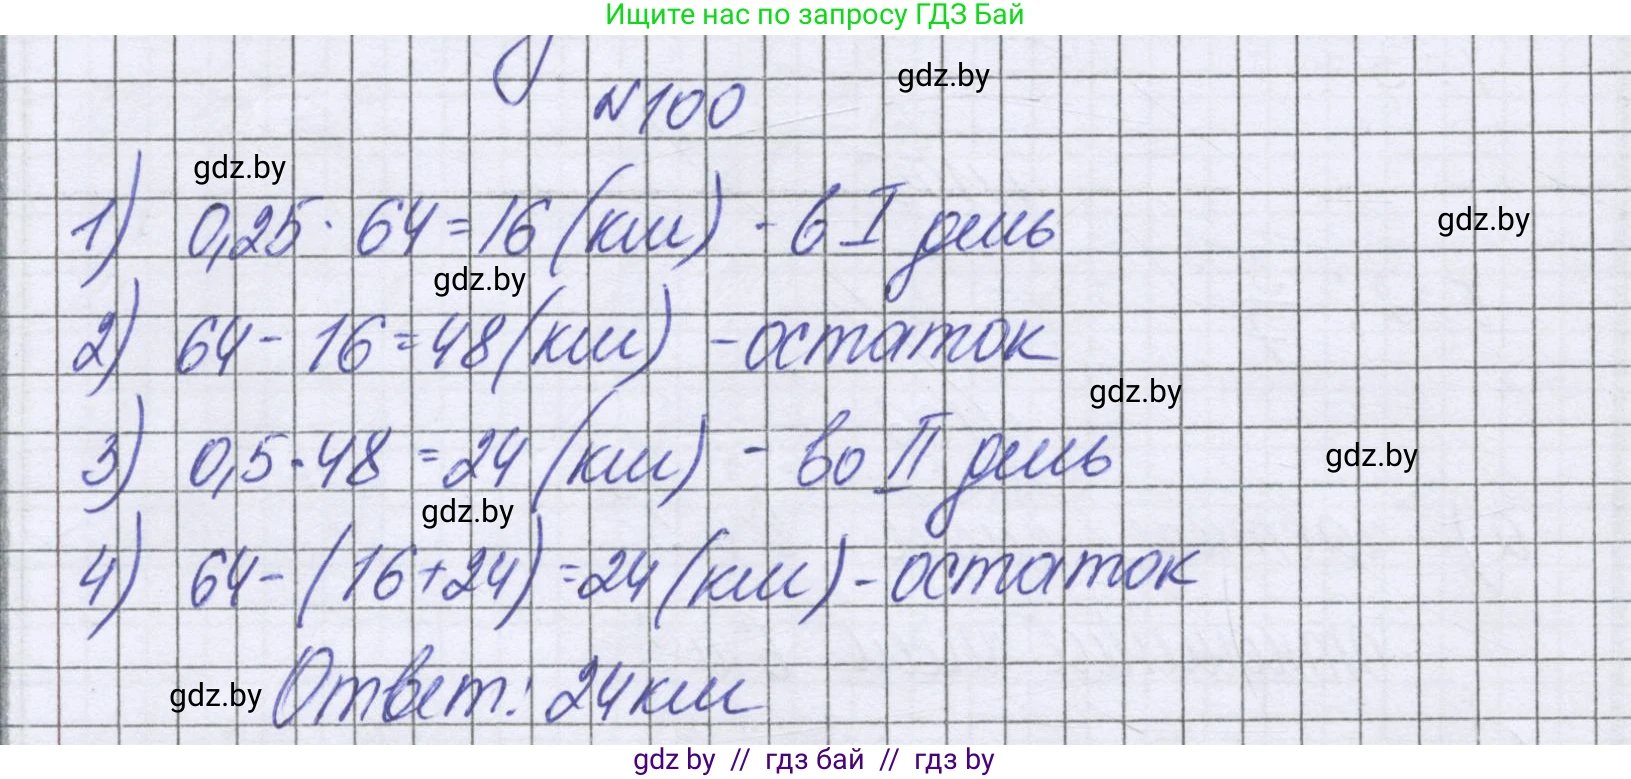 Ищите нас по запросу ГДЗ Бай
gdz.by
N100
gdz.by
1) 0,25 · 64 = 16 (км) - в I день
gdz.by
gdz.by
2) 64 - 16 = 48 (км) - остаток
gdz.by
3) 0,5 · 48 = 24 (км) - во II день
gdz.by
gdz.by
4) 64 - (16 + 24) = 24 (км) - остаток
gdz.by
Ответ: 24 км
gdz by // гдз бай // гдз by